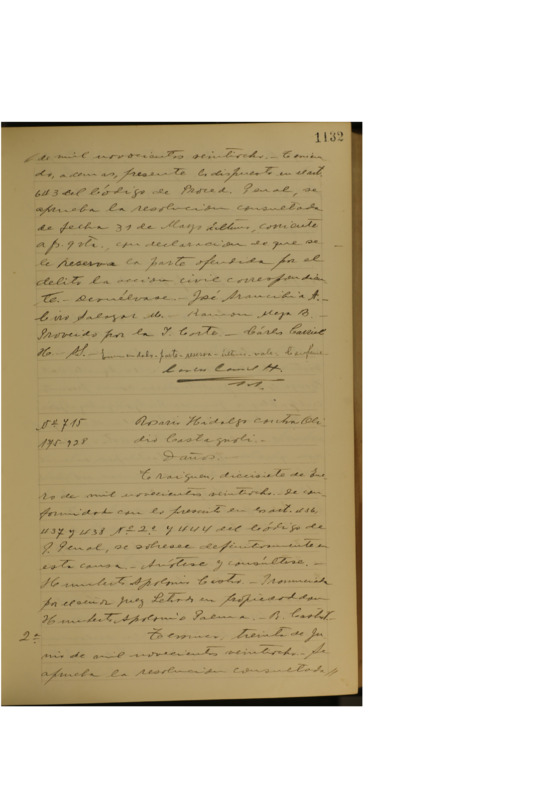 1132
de mil novecientos veintiocho.- Tenien-
do, ademas, presente lo dispuesto en el art.
643 del Código de Proced. Penal, se
aprueba la resolución consultada
de fecha 31 de Mayo último, corriente
a fs. 9 vta., con declaracion de que se
le reserva la parte ofendida por el
delito la accion civil correspondien-
te.- Devuélvase.- José Arancibia A.-
Ciro Salazar M.- Ramon Meza B.-
Proveido por la I. Corte.- Cárlos
H.- S.- Enmendado- parte- reserva- último- vale- Conforme
Carlos H.
Nº 715
195-928
Rosario Hidalgo contra Oli-
drio Castagnoli.-
Daños.-
Traiguen, diecisiete de
ro de mil novecientos veintiocho.- De con-
formidad con lo prescrito en los art. 416,
437 y 438 Nº 2º y 444 del Código de
P. Penal, se sobresee definitivamente en
esta causa.- Anótese y consúltese.-
Humberto Apolonio Castro.- Pronunciada
por el señor Juez Letrado en propiedad don
Humberto Apolonio Palma.- R.
2ª
Temuco, treinta de Ju-
nio de mil novecientos veintiocho.- Se
aprueba la resolucion consultada